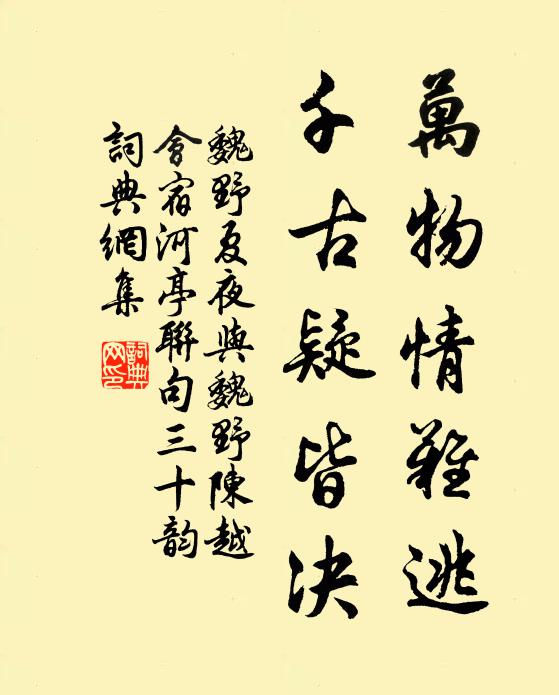 萬物情難逃
千古疑皆决
魏野夏夜與魏野陳越
會宿河亭聯句三十韵
詞典網集
詞典
网印